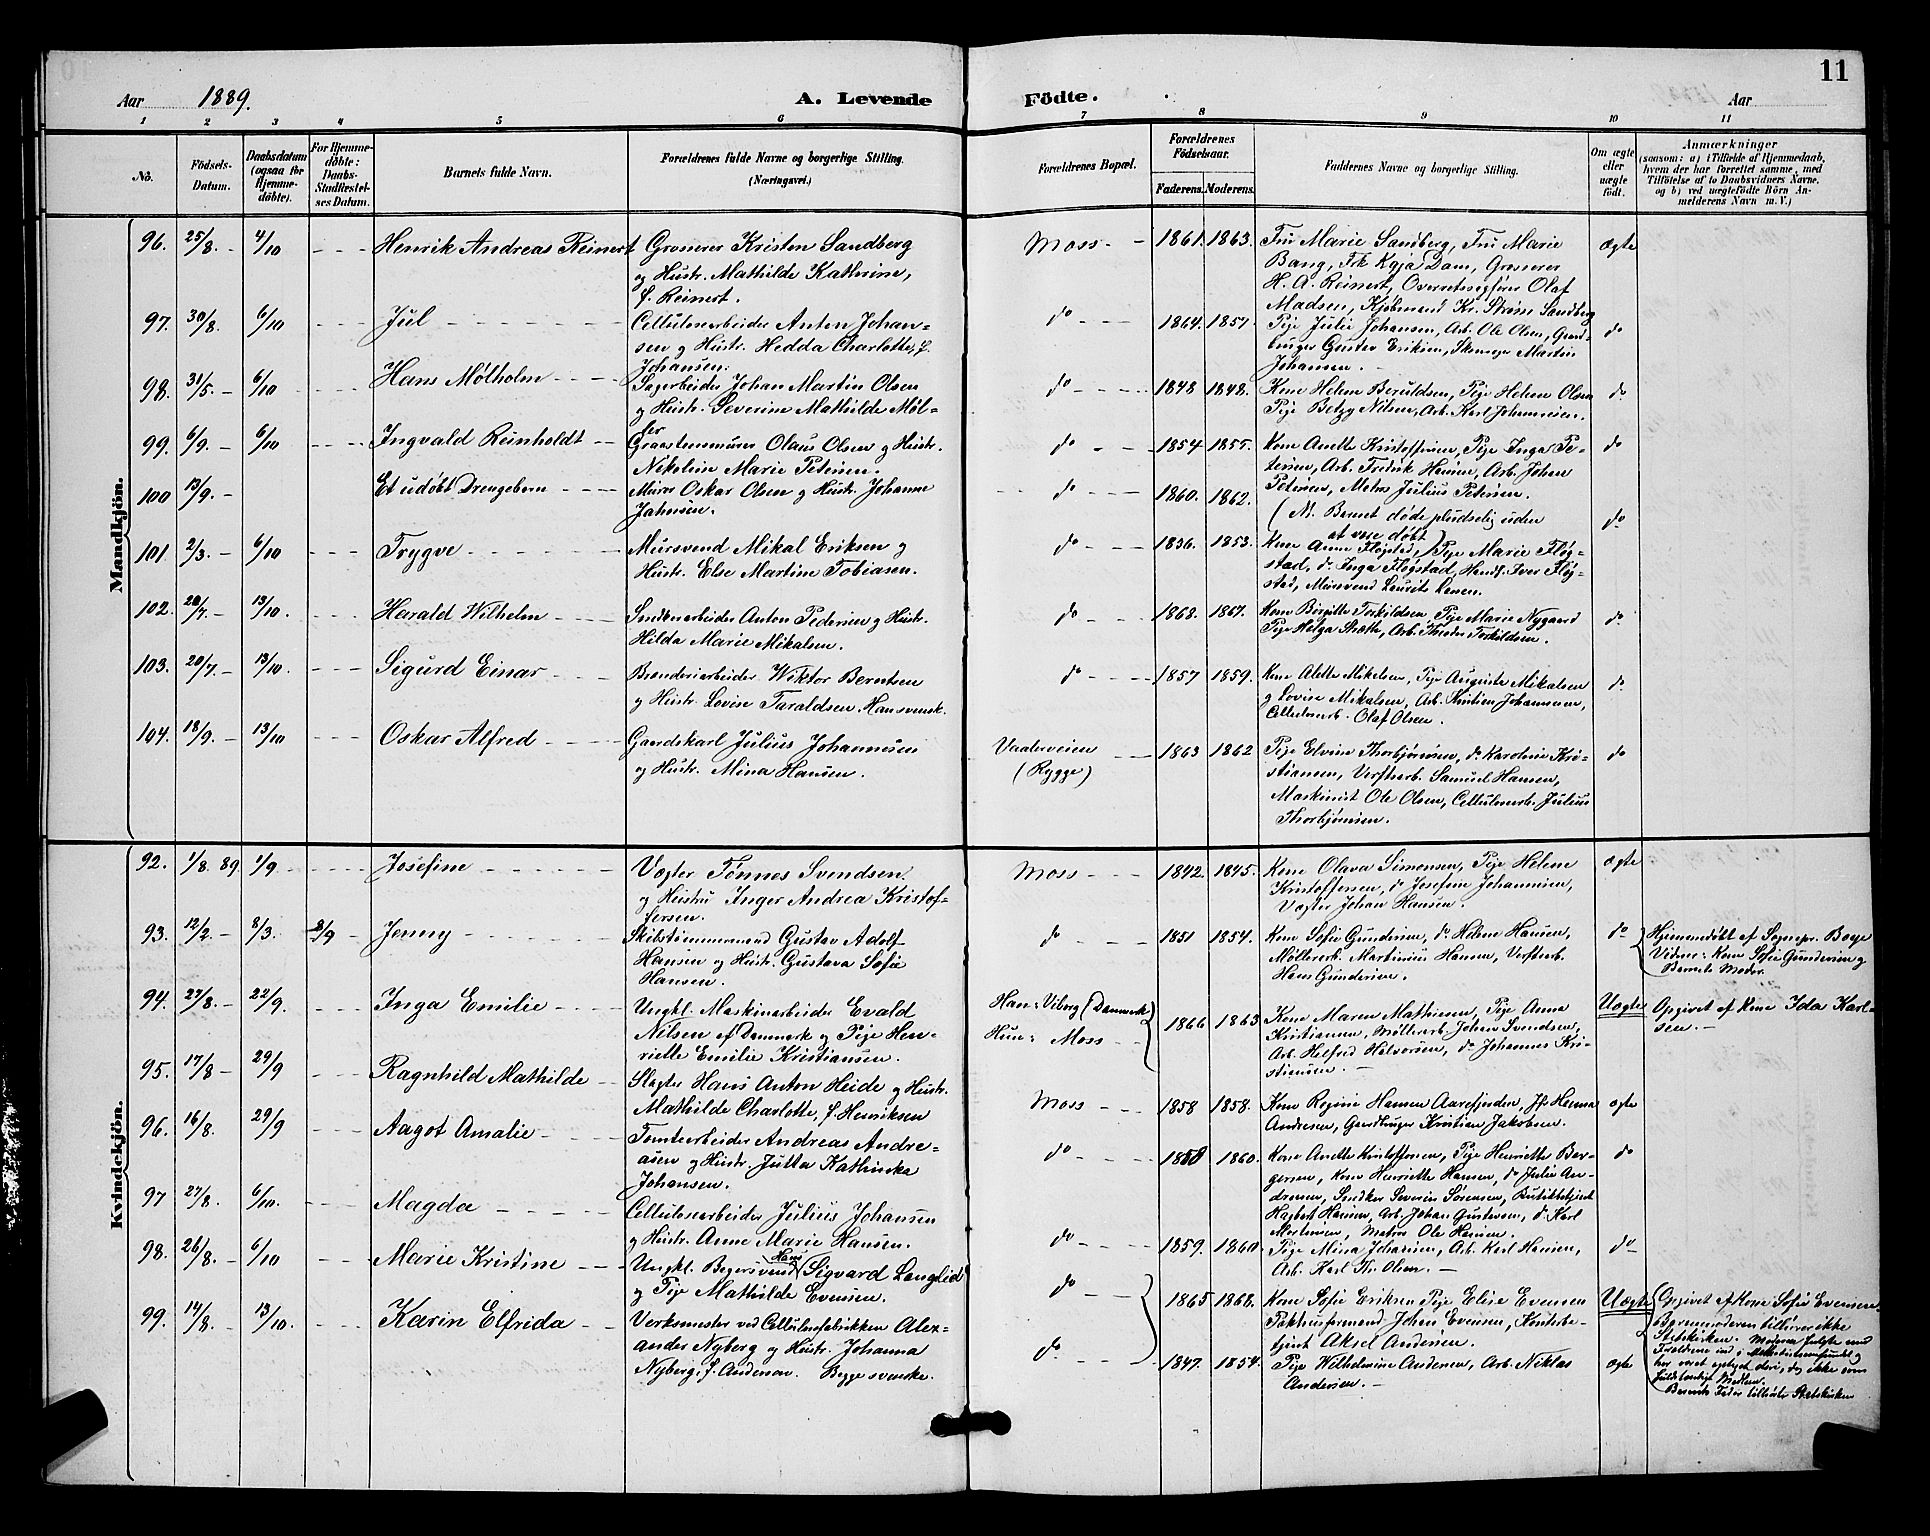 11
Aar 1889. A. Levende Födte. Aar
1 2 3 4 5 6 7 8 9 10 11
No. Födsels-Datum. Daabsdatum (ogsaa for Hjemmedöbte). For Hjemmedöbte: Daabs-Stadfestelses Datum. Barnets fulde Navn. Forældrenes fulde Navne og borgerlige Stilling. (Næringsvei.) Forældrenes Bopæl. Forældrenes Födselsaar. Faderens. Moderens. Faddernes Navne og borgerlige Stilling. Om ægte eller uægte födt. Anmærkninger (saasom: a) i Tilfælde af Hjemmedaab, hvem der har forrettet samme, med Tilföielse af to Daabsvidners Navne, og b) ved uægtefödte Börn Anmelderens Navn m. V.)
Mandkjön.
96. 25/8. 4/10 Henrik Andreas Reinert Grosserer Kristen Sandberg Moss 1861. 1863. Fru Marie Sandberg, Fru Marie ægte
og Hustr. Mathilde Kathrine, Bang, Frk Kaja Dam, Grosserer
f. Reinert. H. A. Reinert, Overretssagfører Olaf
Madsen, Kjøbmand Kr. Strøm Sandberg
97. 30/8. 6/10 Jul Cellulosearbeider Anton Johan- do 1864. 1857. Pige Julie Johansen, Arb. Ole Olsen, Gaard- do
sen og Hustr. Hedda Charlotte, f. bruger Gustav Eriksen, Skomager Martin
Johansen. Johansen.
98. 31/5. 6/10 Hans Mølholm Sagarbeider Johan Martin Olsen do 1848 1848. Kone Helene Beruldsen, Pige Helene Olsen do
og Hustr. Severine Mathilde Møl- Pige Betzy Nilsen, Arb. Karl Johannesen.
ler
99. 6/9. 6/10 Ingvald Reinholdt Graastensmurer Olaus Olsen og Hustr. do 1854 1855. Kone Anette Kristoffersen, Pige Inga Pe- do
Nikoline Marie Petersen. tersen, Arb. Fredrik Hansen, Arb. Johan
Petersen, Matros Julius Petersen.
100 13/9. Et udøbt Drengebarn Murer Oskar Olsen og Hustr. Johanne do 1860. 1862. (N. Barnet døde pludselig uden do
Jahnsen. at være døbt)
101. 2/3. 6/10 Trygve Mursvend Mikal Eriksen og do 1856. 1853. Kone Anne Fløgstad, Pige Marie Fløg-
Hustr. Else Martine Tobiasen. stad, do Inga Fløgstad, Handl. Iver Fløg-
stad, Mursvend Laurits
102. 28/7. 13/10 Harald Wilhelm Anton Pedersen og Hustr. do 1868. 1867. Kone Birgitte Torkildsen, Pige Marie Nygaard do
Hilda Marie Mikalsen. Pige Helga Arb. Theodor Torkildsen.
103. 20/7. 13/10 Sigurd Einar Brænderiarbeider Wiktor Berntsen do 1857 1859. Kone Alette Mikalsen, Pige Auguste Mikalsen do
og Hustr. Lovise Taraldsen. Han svensk. og Lovise Mikalsen, Arb. Kristian Johannesen,
Cellulosearb. Olaf Olsen.
104. 18/9. 13/10 Oskar Alfred Gaardskarl Julius Johannesen Vaalerveien 1863 1862 Pige Elvine Thorbjørnsen, do Karoline Kri- do
og Hustr. Mina Hansen. (Rygge) stiansen, Verftsarb. Samuel Hansen,
Maskinist Ole Olsen, Cellulosearb. Julius
Thorbjørnsen.
Kvindekjön.
92. 1/8. 89. 1/9 Josefine Vægter Tønnes Svendsen Moss 1842. 1845. Kone Olava Simonsen, Pige Helene ægte
og Hustru Inger Andrea Kristof- Kristoffersen, do Josefine Johannesen,
fersen. Vægter Johan Hansen.
93. 12/2. 8/3. 8/9 Jenny Skibstømmermand Gustav Adolf do 1851 1854. Kone Sofie Gundersen, do Helene Hansen, do Hjemmedøbt af Sognepr. Boye
Hansen og Hustr. Gustava Sofie Møllerarb. Martinius Hansen, Verftsarb. Vidner: Kone Sofie Gundersen og
Hansen. Hans Gundersen. Barnets Moder.
94. 27/8. 22/9. Inga Emilie Ungkl. Maskinarbeider Evald Han: Viborg (Danmark) 1866 1863 Kone Maren Mathisen, Pige Anna Uægte Opgivet af Kone Ida Karl-
Nilsen af Danmark og Pige Hen- Hun: Moss Kristiansen, Møllerarb. Johan Svendsen, sen.
riette Emilie Kristiansen. Arb. Helfred Halvorsen, do Johannes Kri-
stiansen.
95. 17/8 29/9 Ragnhild Mathilde Slagter Hans Anton Heide og Hustr. Moss 1858 1858. Kone Regine Hansen Aarefjorden, Jfr Hanna ægte
Mathilde Charlotte, f. Henriksen Andresen, Gaardbruger Kristian Jakobsen.
96. 16/8. 29/9 Aagot Amalie Tomtearbeider Andreas Andre- do 1858 1860. Kone Anette Kristoffersen, Pige Henriette Bør- do
asen og Hustr. Jutta Kathinka gersen, Kone Henriette Hansen, do Julie An-
Johansen. dresen, Snedker Severin Sørensen, Butikbetjent
Hagbart Hansen, Arb. Johan Gustavsen, do Karl
Martinsen, Matros Ole Hansen.
97 27/8. 6/10. Magda Cellulosearbeider Julius Johansen do 1859. 1860. Pige Mina Johansen, Arb. Karl Hansen, do
og Hustr. Anne Marie Hansen. Arb. Karl Th. Olsen.
98. 26/8. 6/10 Marie Kristine Ungkl. Bagersvend Hans Sigvard Langlid do 1865 1868. Kone Sofie Eriksen Pige Elise Evensen Uægte Opgivet af Kone Sofie Evensen.
og Pige Mathilde Evensen. Pakhusformand Johan Evensen, Kontorbe- Barnemoderen tilhører ikke
tjent Aksel Andersen. Statskirken.
99. 14/8. 13/10. Karin Elfrida Verksmester ved Cellulosefabrikken Alex- do 1847. 1854. Pige Wilhelmine Andersen, Arb. Niklas ægte
ander Nyberg og Hustr. Johanna Andersen.
Nyberg, f. Anderson. Begge svenske.
Moderen fulgte med
Forældrene ind i
har været optaget deri, dog ikke som
fuldstændigt Medlem.
Barnets Fader tilhører Statskirken